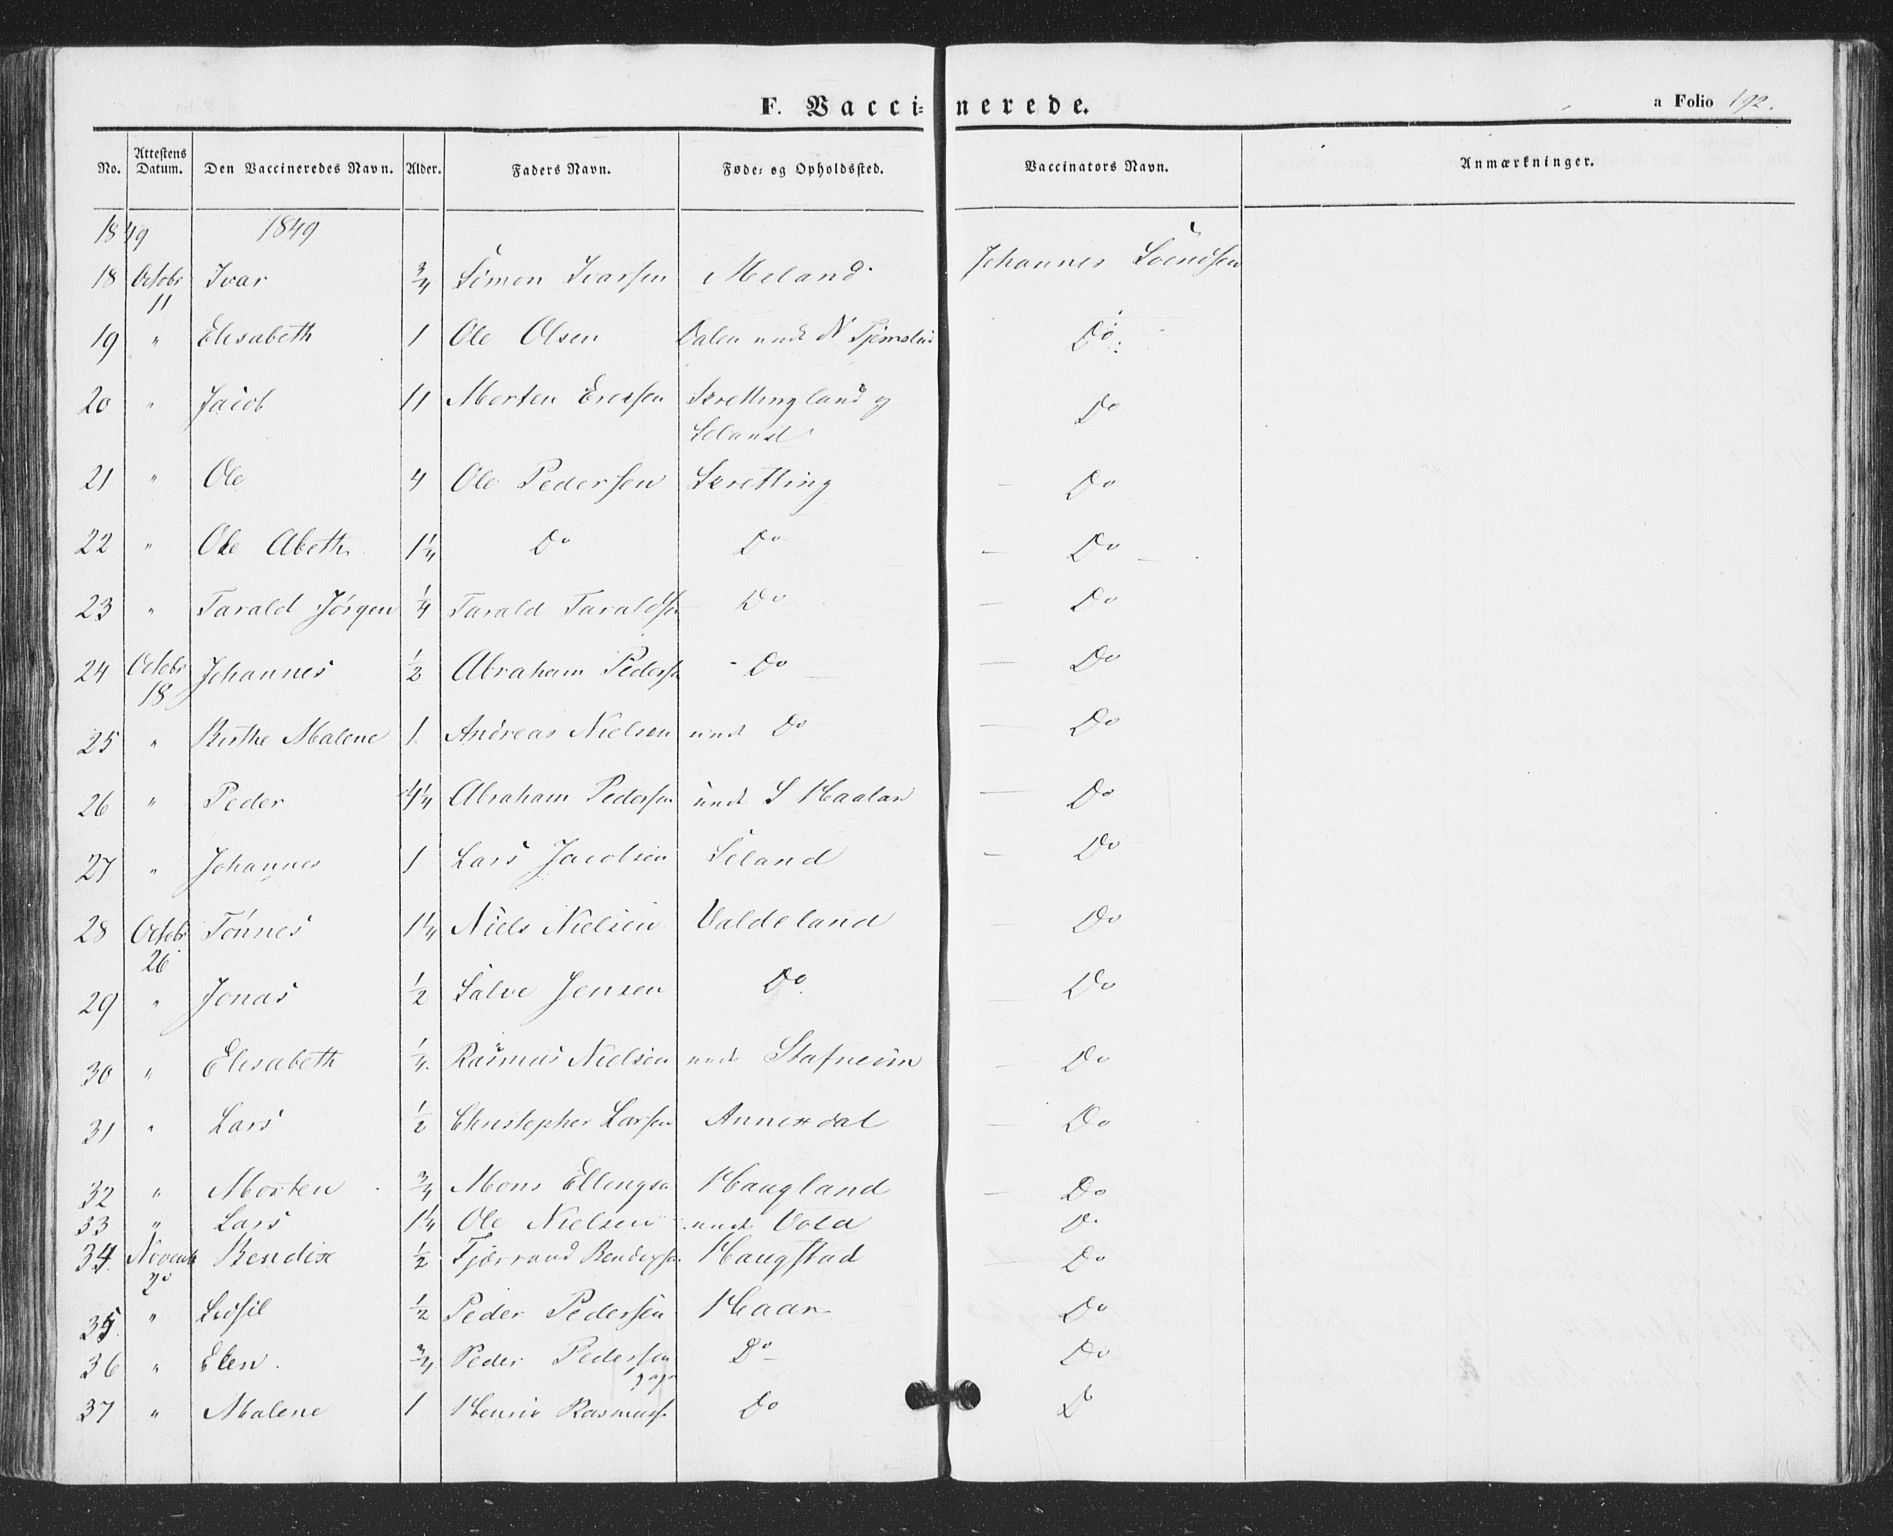 F. Vaccinerede. a Folio 192.
No. Attestens Datum. Den Vaccineredes Navn. Alder. Faders Navn. Føde- og Opholdssted. Vaccinators Navn. Anmærkninger.
1849 1849
18 Octobr 11 Ivar 3/4 Simon Ivarsen Meland Johannes Svendsen
19 " Elisabeth 1 Ole Olsen Dalen und N Tjemsland Do
20 " Jacob 11 Morten Ericsen Skrettingland og
Seland Do
21 " Ole 4 Ole Pedersen Skretting Do
22 " Ole Abeth 1 1/4 Do Do Do
23 " Tarald Jørgen 1/4 Tarald Taraldsen Do Do
24 Octobr 18 Johannes 1/2 Abraham Peders Do Do
25 " Birthe Malene 1 Andreas Nielsen und Do Do
26 " Peder 4 1/4 Abraham Pedersen und S Haaland Do
27 " Johannes 1 Lars Jacobsen Seland Do
28 Octobr 26 Tønnes 1 1/4 Niels Nielsen Valdeland Do
29 " Jonas 1/2 Salve Jensen Do Do
30 " Elisabeth 1/4 Rasmus Nielsen und Stafneim Do
31 " Lars 1/2 Christopher Larsen Annexdal Do
32 " Morten 3/4 Mons Ellingsn Haugland Do
33 " Lars 1 1/4 Ole Nielsen und Vold Do
34 Novemb 2 Bendix 1/2 Tjørrand Bendixsen Haugstad Do
35 " 1/2 Peder Pedersen Haar Do
36 " Elen 3/4 Peder Pedersen Do Do
37 " Malene 1 Henric Rasmuss Do Do